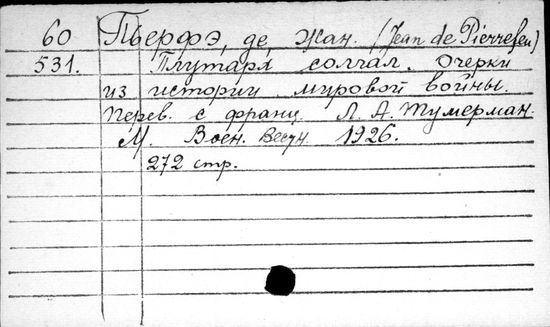 60 Пьерфэ, де, Жан. (Jean de Pierrefeu)
531. Плутарх солгал. Очерки
из истории мировой войны.
Перев. с франц. Л. А. Тумерман.
М. Воен. Вестн. 1926.
272 стр.